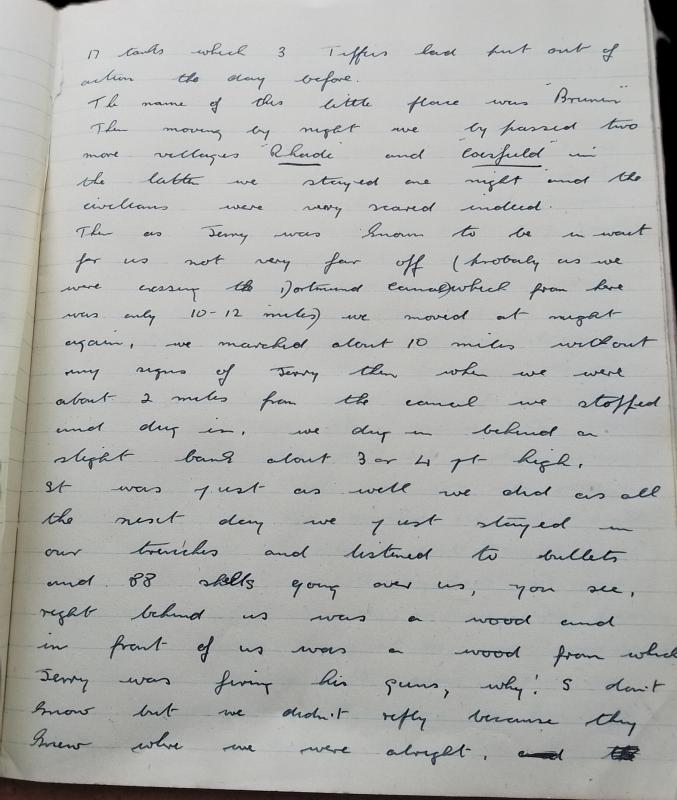 17 tanks which 3 Tiffies had put out of
action the day before.
The name of this little place was "Brunen"
Then moving by night we by passed two
more villages "Rhade" and in
the latter we stayed one night and the
civilians were very scared indeed.
Then as Jerry was known to be in wait
for us not very far off (probaly as we
were crossing the Dortmund Canal) which from here
was only 10-12 miles) we moved at night
again, we marched about 10 miles without
any signs of Jerry then when we were
about 2 miles from the canal we stopped
and dug in, we dug in behind a
slight bank about 3 or 4 ft high.
It was just as well we did as all
the next day we just stayed in
our trenches and listened to bullets
and 88 shells going over us, you see,
right behind us was a wood and
in front of us was a wood from which
Jerry was firing his guns, why! I don't
know but we didn't reply because they
knew where we were alright.